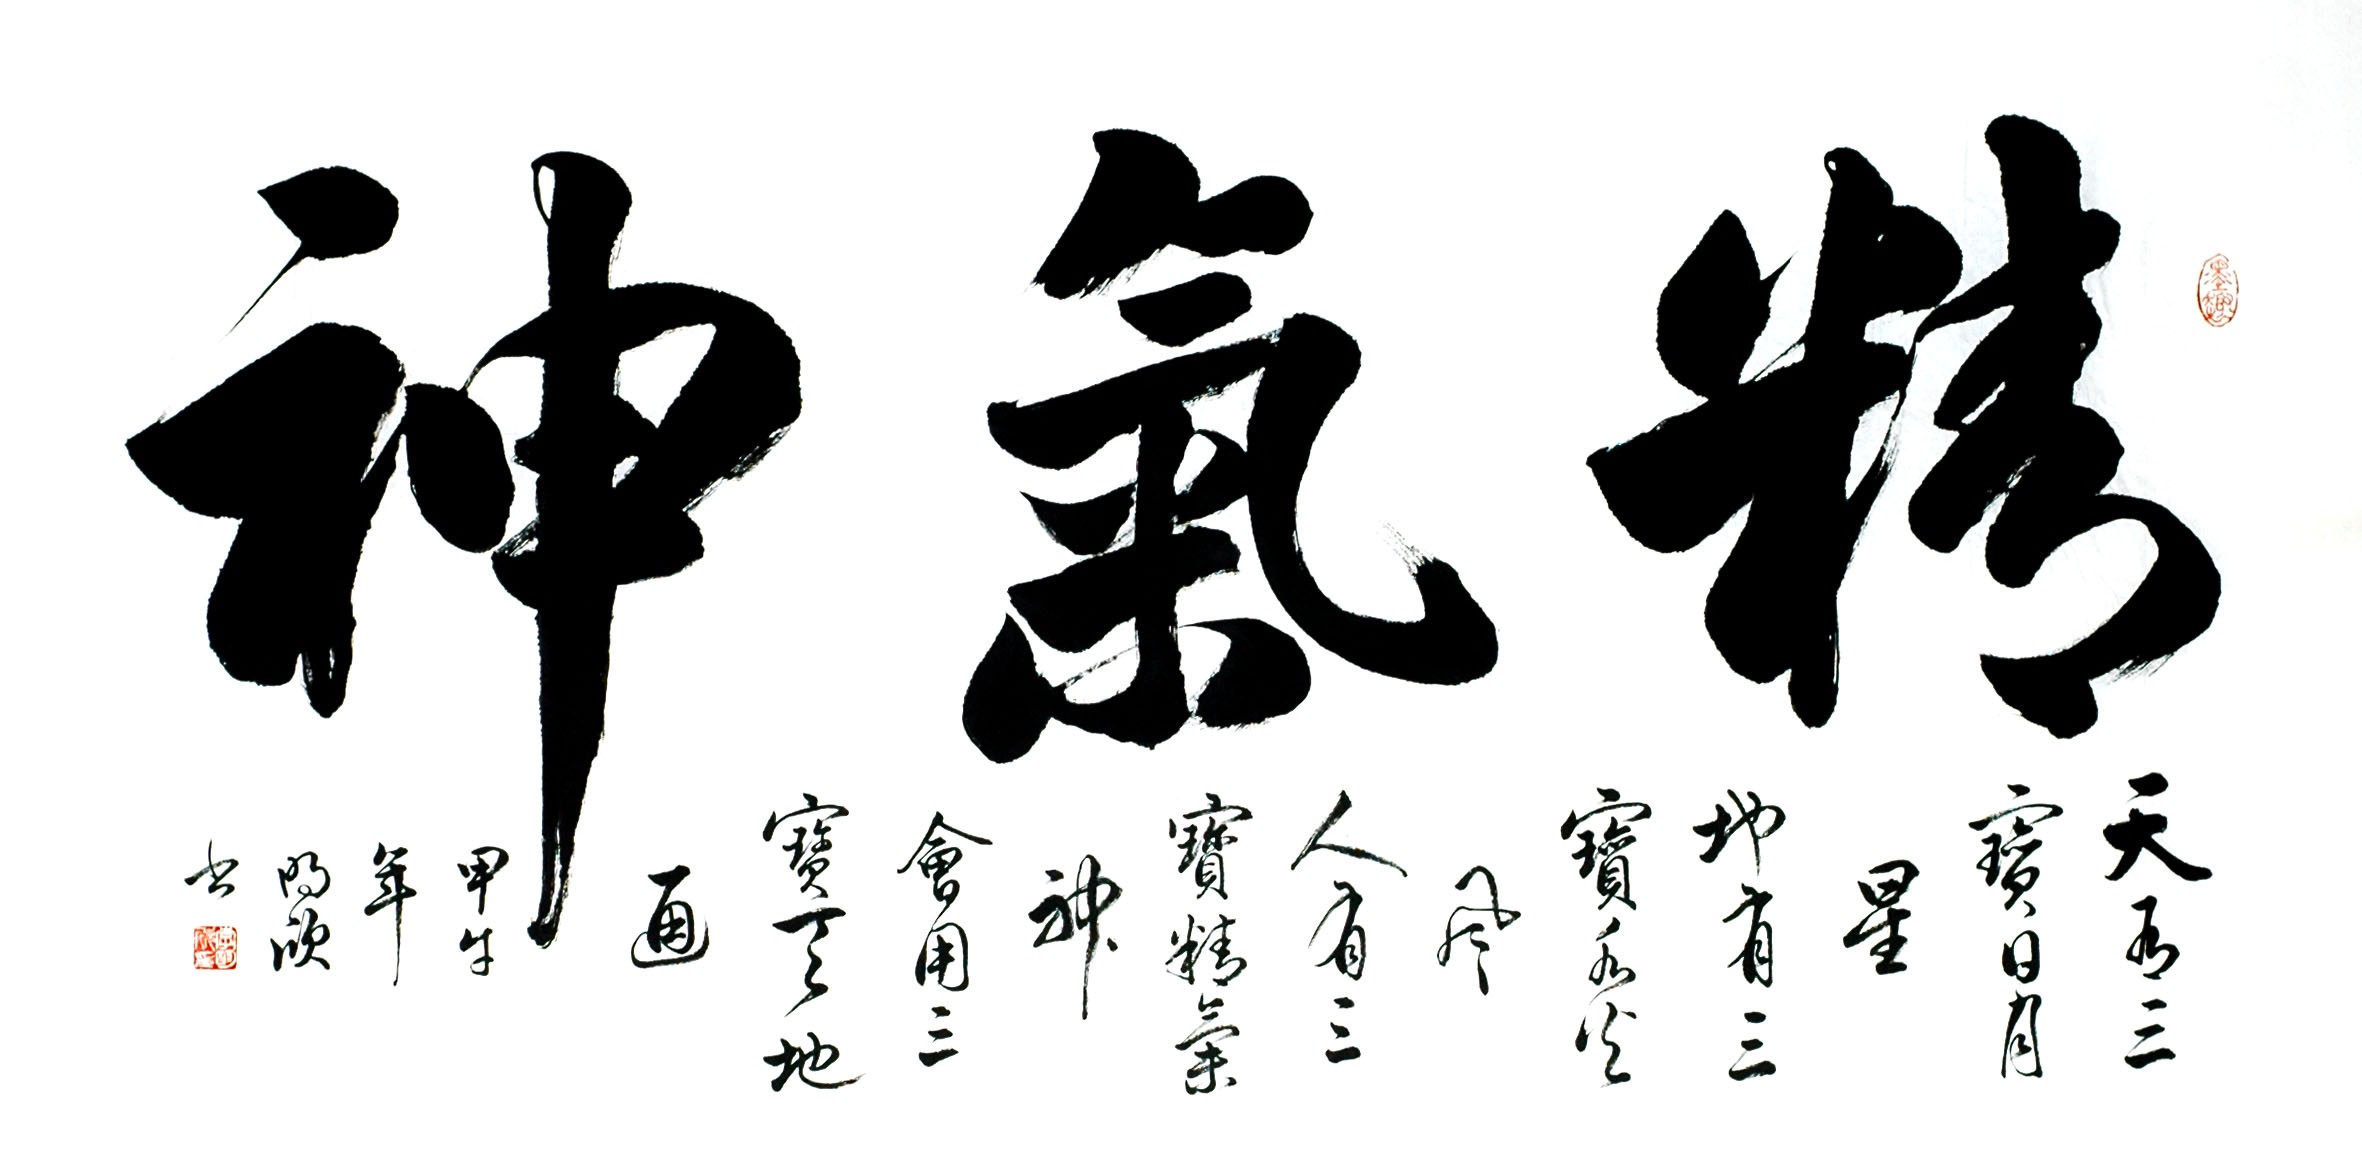 精氣神
天有三
寶日月
星
地有三
寶水火
風
人有三
寶精氣
神
會用三
寶天地
通
甲午
年
明欣
书